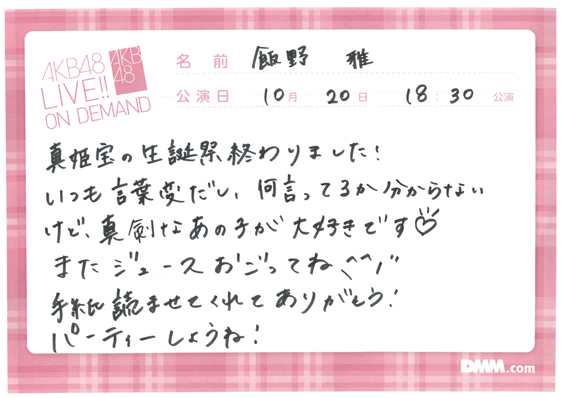 AKB48
LIVE!!
ON DEMAND
AKB
48
名前 飯野 雅
公演日 10月 20日 18:30 公演
真姫宝の生誕祭終わりました!
いつも言葉変だし、何言ってるか分からない
けど、真剣なあの子が大好きです♡
またジュースおごってね^^ノ"
手紙読ませてくれてありがとう!
パーティーしようね!
DMM.com